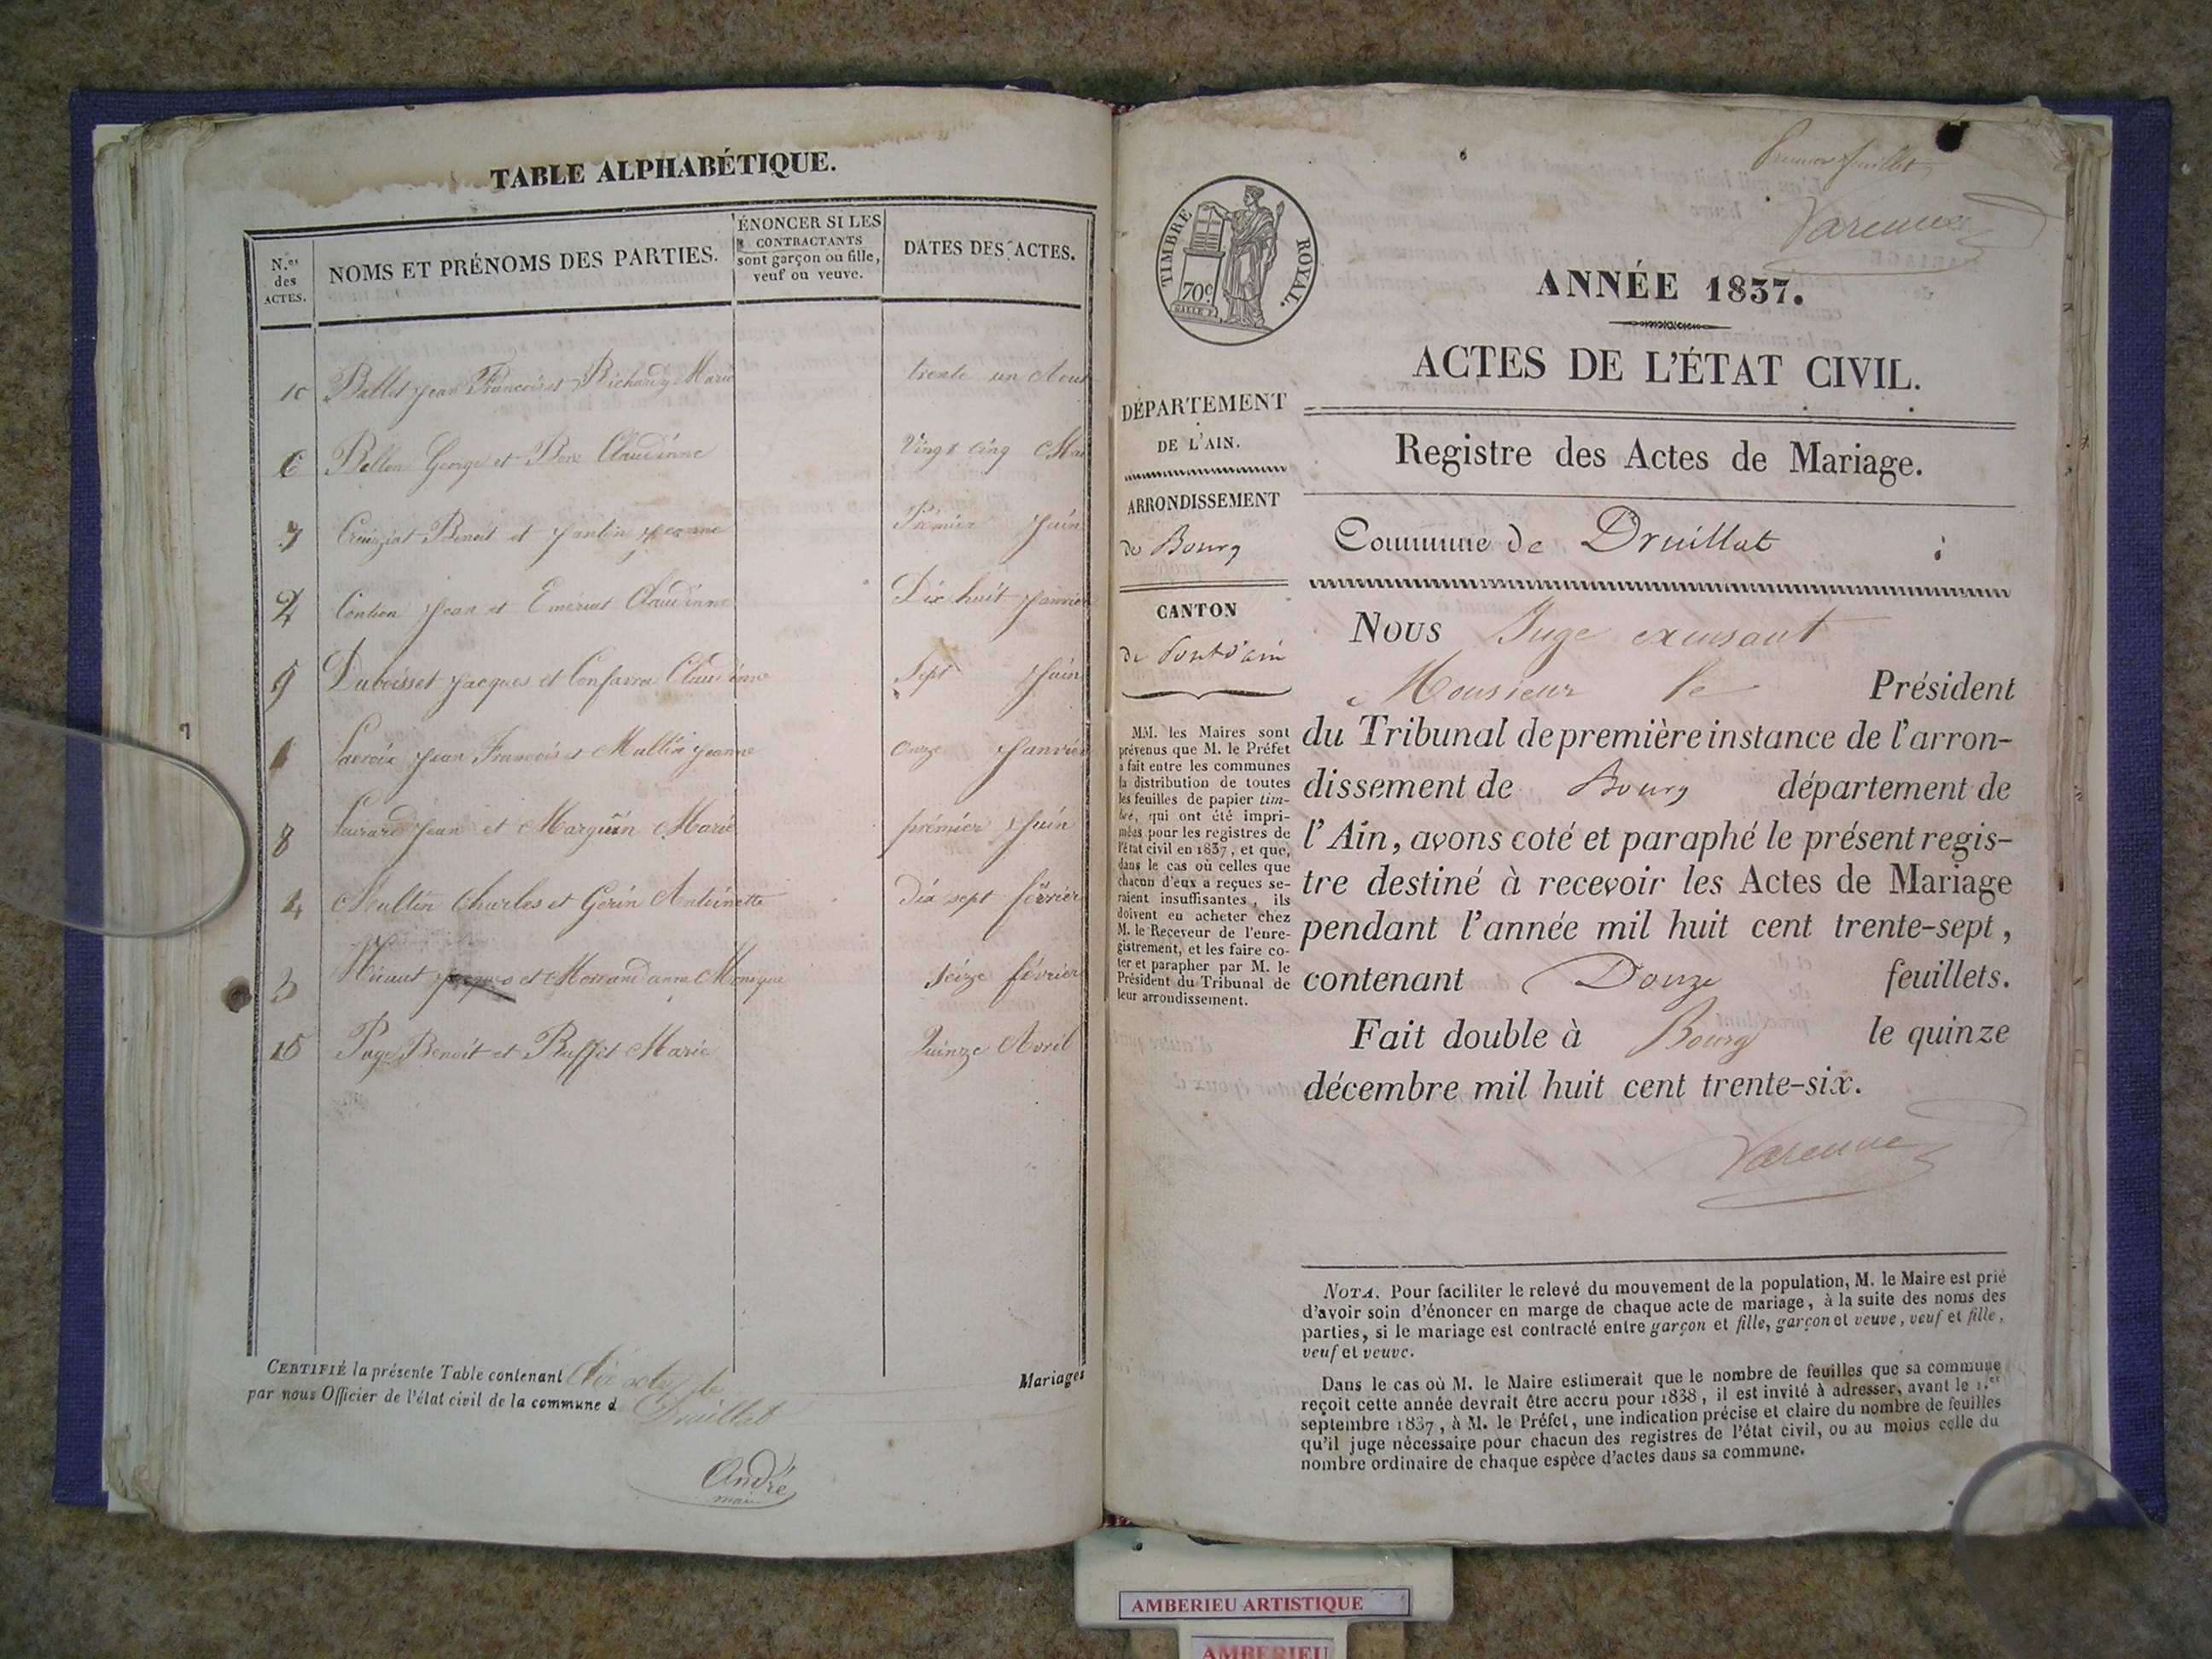 TABLE ALPHABÉTIQUE.
N.os des ACTES.
NOMS ET PRÉNOMS DES PARTIES.
ÉNONCER SI LES
CONTRACTANTS
sont garçon ou fille,
veuf ou veuve.
DATES DES ACTES.
10 Ballet Jean François et Richard Marie trente un Aout
6 Bellon George et Bon Claudinne Vingt cinq Mai
7 Cruiziat Benoit et Jantin Jeanne Prémier Juin
2 Contion Jean et Claudinne Dix huit Janvier
9 Duboisset Jacques et Confavre Claudinne Sept Juin
1 Lacroix Jean François et Mullin Jeanne onze Janvier
8 Jean et Marguin Marie prémier Juin
4 Mullin Charles et Gérin Antoinette dix sept février
3 et Morrand anne Monique Seize février
5 Page Benoit et Buffet Marie Quinze Avril
CERTIFIÉ la présente Table contenant Dix actes de Mariages
par nous Officier de l'état civil de la commune d Druillat
André
maire
Premier feuillet
Varenne
TIMBRE ROYAL.
70c
ANNÉE 1837.
ACTES DE L'ÉTAT CIVIL.
DÉPARTEMENT
DE L'AIN.
ARRONDISSEMENT
de Bourg
CANTON
de Pontd'ain
MM. les Maires sont
prévenus que M. le Préfet
a fait entre les communes
la distribution de toutes
les feuilles de papier tim-
bré, qui ont été impri-
mées pour les registres de
l'état civil en 1837, et que,
dans le cas où celles que
chacun d'eux a reçues se-
raient insuffisantes, ils
doivent en acheter chez
M. le Receveur de l'enre-
gistrement, et les faire co-
ter et parapher par M. le
Président du Tribunal de
leur arrondissement.
Registre des Actes de Mariage.
Commune de Druillat
Nous Juge exensant
Monsieur le Président
du Tribunal de première instance de l'arron-
dissement de Bourg département de
l'Ain, avons coté et paraphé le présent regis-
tre destiné à recevoir les Actes de Mariage
pendant l'année mil huit cent trente-sept,
contenant Douze feuillets.
Fait double à Bourg le quinze
décembre mil huit cent trente-six.
Varenne
NOTA. Pour faciliter le relevé du mouvement de la population, M. le Maire est prié
d'avoir soin d'énoncer en marge de chaque acte de mariage, à la suite des noms des
parties, si le mariage est contracté entre garçon et fille, garçon et veuve, veuf et fille,
veuf et veuve.
Dans le cas où M. le Maire estimerait que le nombre de feuilles que sa commune
reçoit cette année devrait être accru pour 1838, il est invité à adresser, avant le 1.er
septembre 1837, à M. le Préfet, une indication précise et claire du nombre de feuilles
qu'il juge nécessaire pour chacun des registres de l'état civil, ou au moins celle du
nombre ordinaire de chaque espèce d'actes dans sa commune.
AMBERIEU ARTISTIQUE
AMBERIEU